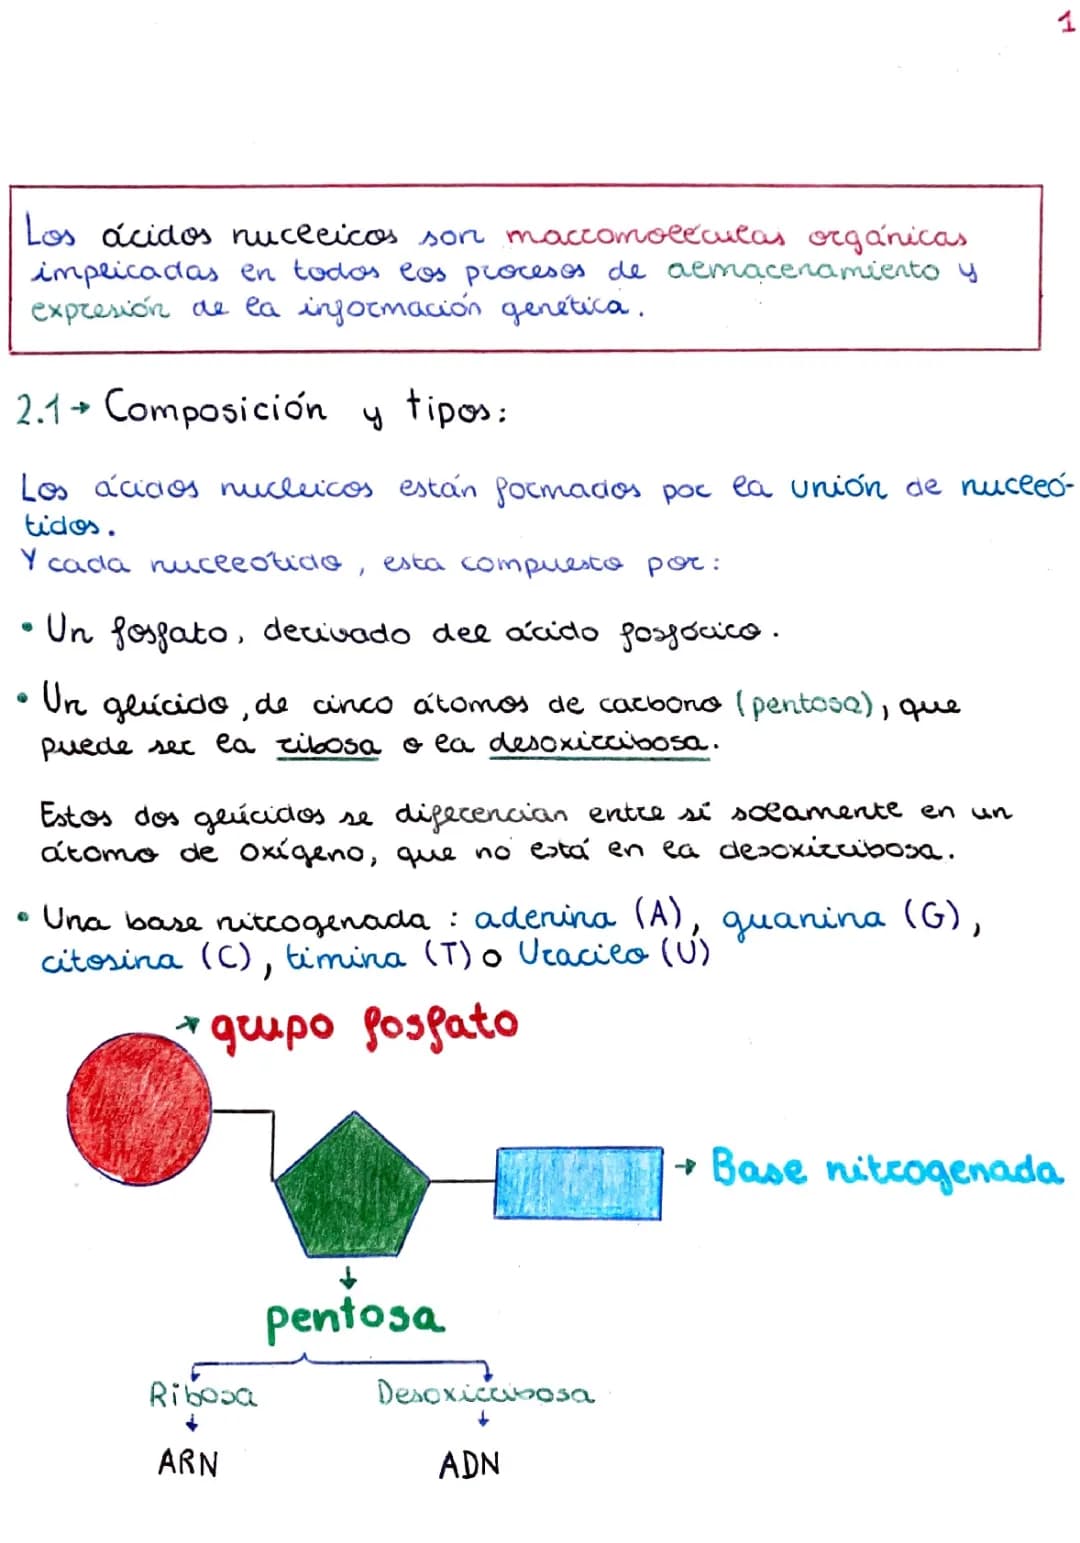 1
Los ácidos nucleicos son macromoléculas orgánicas
implicadas en todos los procesos de almacenamiento y
expresión de la información genética.
2.1→ Composición y tipos:
Los ácidos nucleicos están formados por la unión de nucleó-
tidos.
Y cada nucleotido, esta compuesto por:
• Un fosfato, derivado del ácido fosfórico.
• Un glúcido, de cinco átomos de carbono (pentosa), que
puede ser la ribosa o la desoxirribosa.
Estos dos glúcidos se diferencian entre sí solamente en un
átomo de oxígeno, que no está en la desoxirribosa.
• Una base nitrogenada: adenina (A), guanina (G),
citosina (C), timina (T) o Uracilo (U)
→ grupo fosfato
→ Base nitrogenada
↓
pentosa
Ribosa Desoxirribosa
↓ ↓
ARN ADN